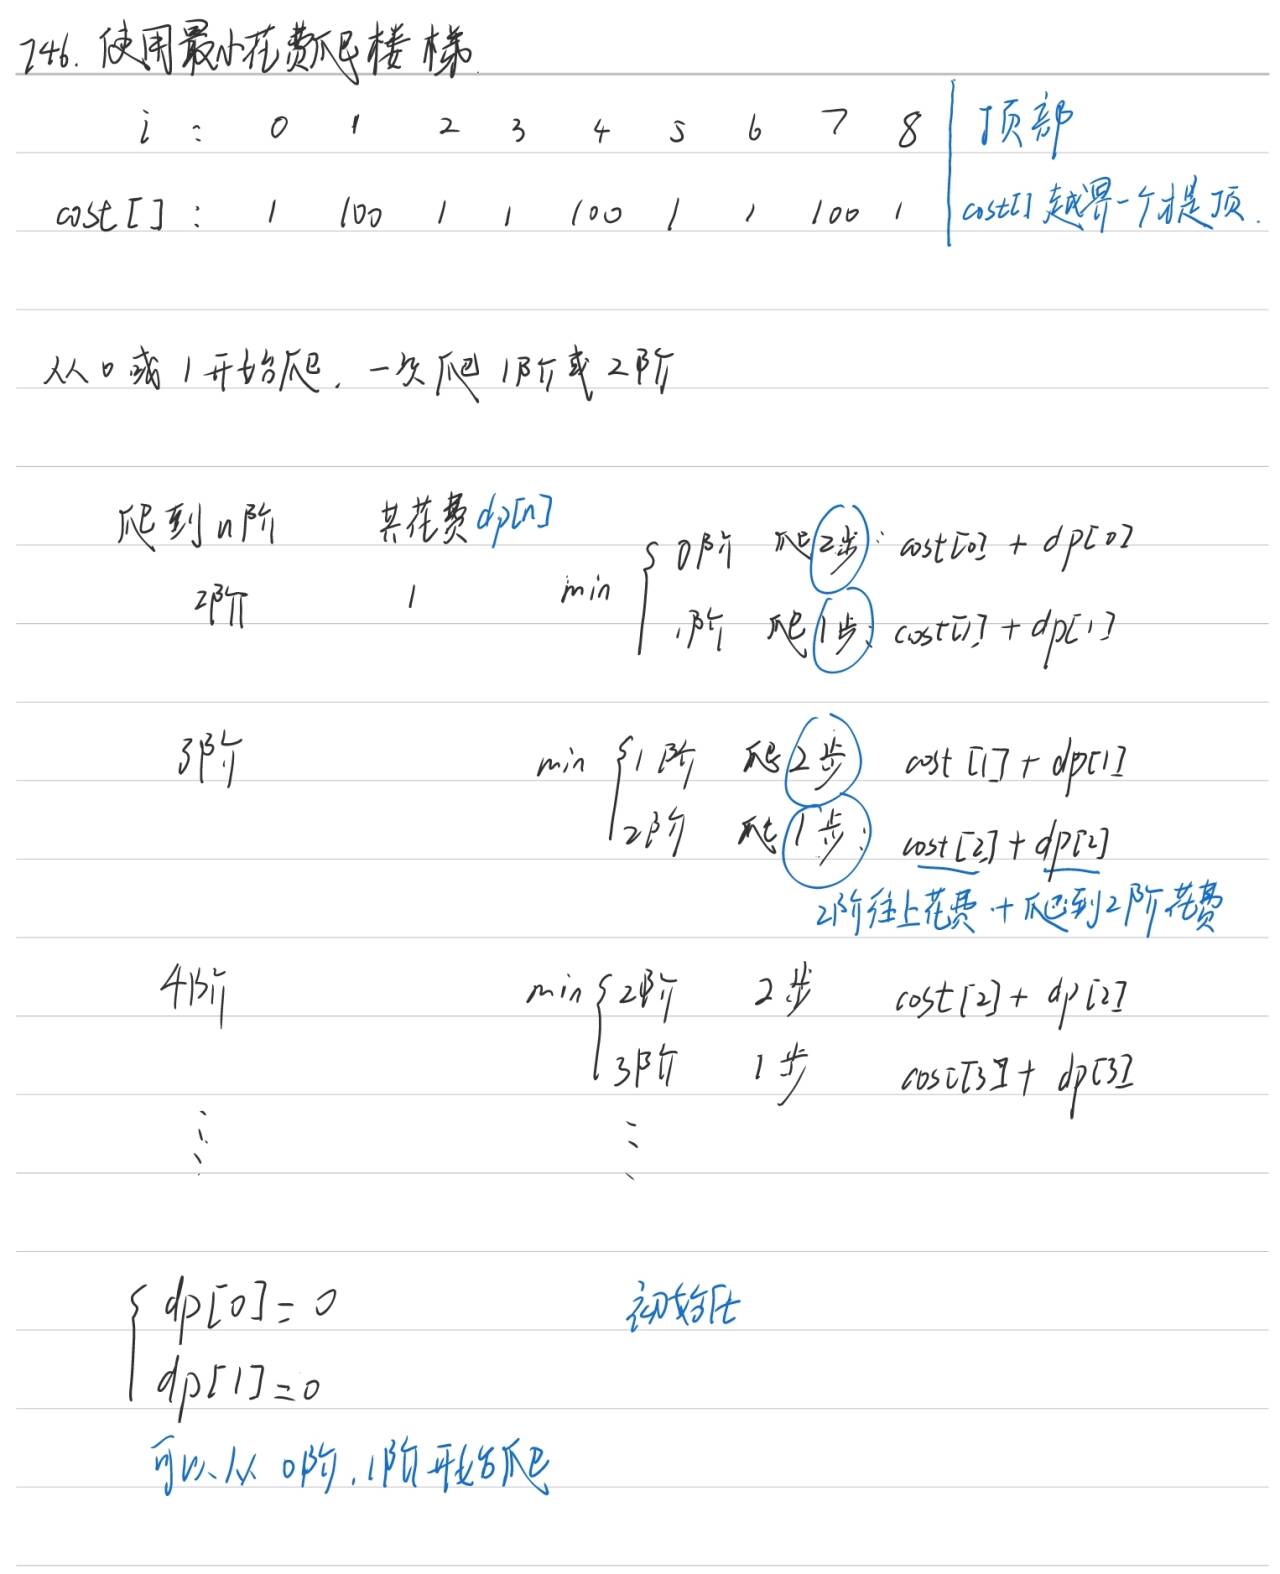 746. 使用最小花费爬楼梯.
i : 0 1 2 3 4 5 6 7 8 顶部
cost[] : 1 100 1 1 100 1 1 100 1 cost[] 越界一个才是顶.
从 0 或 1 开始爬. 一次爬 1阶或 2阶
爬到 n阶 共花费 dp[n]
0阶 爬2步: cost[0] + dp[0]
2阶 1 min {
1阶 爬1步: cost[1] + dp[1]
3阶 min { 1阶 爬2步 cost[1] + dp[1]
2阶 爬1步: cost[2] + dp[2]
2阶往上花费 + 爬到2阶花费
4阶 min { 2阶 2步 cost[2] + dp[2]
3阶 1步 cost[3] + dp[3]
⋮ ⋮
{ dp[0] = 0 初始化
dp[1] = 0
可以从 0阶, 1阶开始爬